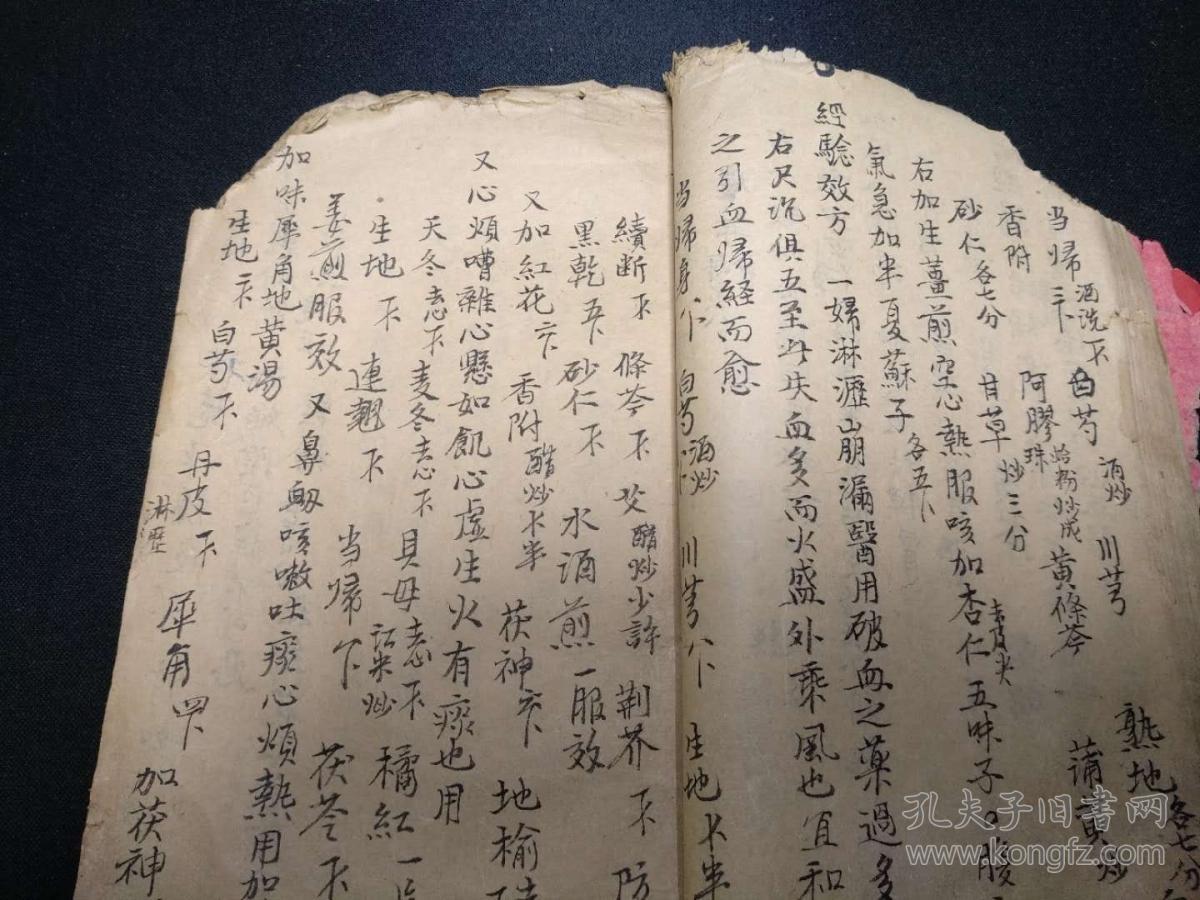 当歸 酒洗 白芍 酒炒 川芎 熟地 各七分
香附 三 阿膠珠 蛤粉炒成 黄條芩 蒲黄炒
砂仁 各七分 甘草 炒三分
右加生薑煎空心熱服咳加杏仁 去皮尖 五味子
氣急加半夏蘇子 各五
經驗效方 一婦淋瀝崩漏醫用破血之藥過多
右尺沉俱五至此失血多而火盛外乘風也宜和
之引血歸経而愈
当歸身 白芍 酒炒 川芎 生地
續断 條芩 艾 醋炒少許 荆芥 防
黑乾 五 砂仁 水酒煎一服效
又加紅花 香附 醋炒 茯神 地榆
又心煩嘈雜心懸如飢心虚生火有痰也用
天冬 去心 麦冬 去心 貝母 去心 橘紅 一
生地 連翹 当歸 茯苓
姜煎服效 又鼻衂咳嗽吐痰心煩熱用加
加味犀角地黄湯
生地 白芍 丹皮 犀角 四 加茯神
淋瀝
孔夫子旧書网
www.kongfz.com